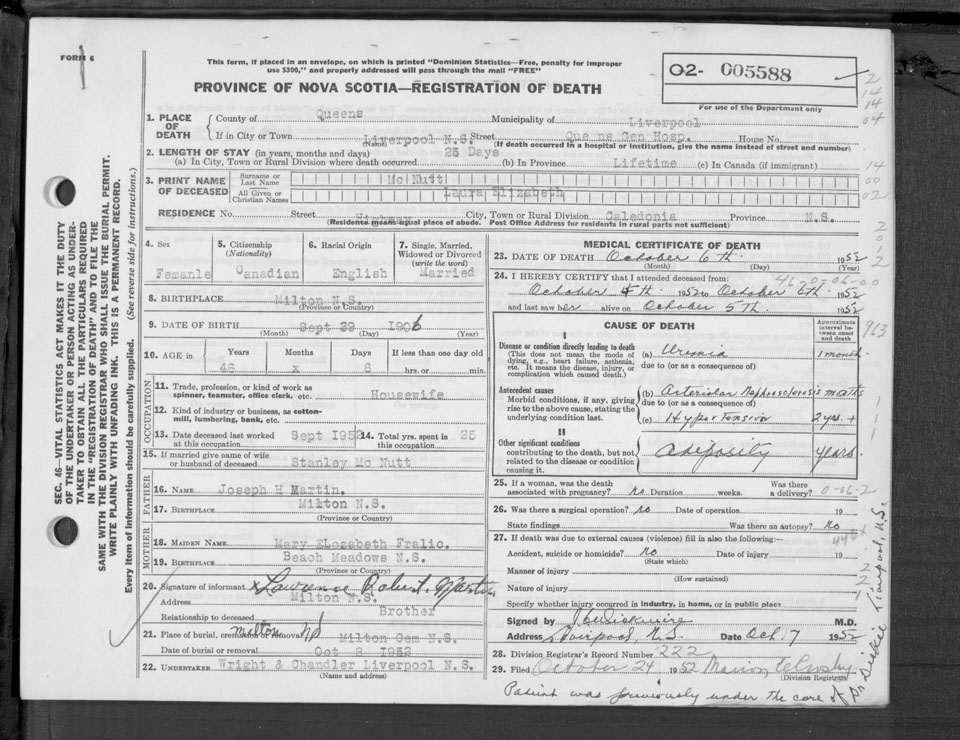 FORM 6
This form, if placed in an envelope, on which is printed "Dominion Statistics—Free, penalty for improper
use $300," and properly addressed will pass through the mail "FREE"
02- 005588
PROVINCE OF NOVA SCOTIA—REGISTRATION OF DEATH
For use of the Department only
1. PLACE OF DEATH
County of Queens Municipality of Liverpool
If in City or Town Liverpool N.S. Street Queens Gen Hosp. House No.
(Name) (If death occurred in a hospital or institution, give the name instead of street and number)
2. LENGTH OF STAY (in years, months and days)
(a) In City, Town or Rural Division where death occurred 25 Days (b) In Province Lifetime (c) In Canada (if immigrant)
3. PRINT NAME OF DECEASED
Surname or Last Name Mc Nutt
All Given or Christian Names Laura Elizabeth
RESIDENCE No. Street Highway City, Town or Rural Division Caledonia Province N.S.
(Residence means equal place of abode. Post Office Address for residents in rural parts not sufficient)
4. Sex
Femanle
5. Citizenship (Nationality)
Canadian
6. Racial Origin
English
7. Single, Married, Widowed or Divorced (write the word)
Married
8. BIRTHPLACE Milton N.S.
(Province or Country)
9. DATE OF BIRTH Sept 29 1906
(Month) (Day) (Year)
10. AGE in
Years Months Days If less than one day old
46 x 6 hrs. or min.
OCCUPATION
11. Trade, profession, or kind of work as
spinner, teamster, office clerk, etc. Housewife
12. Kind of industry or business, as cotton-
mill, lumbering, bank, etc.
13. Date deceased last worked at this occupation Sept 1952
14. Total yrs. spent in this occupation 25
15. If married give name of wife
or husband of deceased Stanley Mc Nutt
FATHER
16. NAME Joseph H Martin.
17. BIRTHPLACE Milton N.S.
(Province or Country)
MOTHER
18. MAIDEN NAME Mary ELozabeth Fralic.
19. BIRTHPLACE Beach Meadows N.S.
(Province or Country)
20. Signature of informant x Lawrence Robert. Martin
Address Milton N.S.
Relationship to deceased Brother
21. Place of burial, cremation or removal Milton NS Milton Cem N.S.
Date of burial or removal Oct 8 1952
22. UNDERTAKER Wright & Chandler Liverpool N.S.
(Name and address)
MEDICAL CERTIFICATE OF DEATH
23. DATE OF DEATH October 6 th. 1952
(Month) (Day) (Year)
24. I HEREBY CERTIFY that I attended deceased from:
October 4th. 1952 to October 6th. 1952
and last saw her alive on October 5th. 1952
CAUSE OF DEATH
Approximate interval between onset and death
I
Disease or condition directly leading to death
(This does not mean the mode of
dying, e.g., heart failure, asthenia,
etc. It means the disease, injury, or
complication which caused death.)
(a) Uremia 1 month
due to (or as a consequence of)
Antecedent causes
Morbid conditions, if any, giving
rise to the above cause, stating the
underlying condition last.
(b) Arteriolar Nephrosclerosis months
due to (or as a consequence of)
(c) Hypertension 2 yrs. +
II
Other significant conditions
contributing to the death, but not
related to the disease or condition
causing it.
Adiposity years.
25. If a woman, was the death
associated with pregnancy? no Duration weeks. Was there a delivery?
26. Was there a surgical operation? no Date of operation 19
State findings Was there an autopsy? no
27. If death was due to external causes (violence) fill in also the following:—
Accident, suicide or homicide? no Date of injury 19
(State which)
Manner of injury
(How sustained)
Nature of injury
Specify whether injury occurred in industry, in home, or in public place
Signed by M.D.
Address Liverpool, N.S. Date Oct 17 1952
28. Division Registrar's Record Number 222
29. Filed October 24 1952 Marion
(Division Registrar)
Patient was previously under the care of Dr Dickie Liverpool, N.S.
SEC. 46—VITAL STATISTICS ACT MAKES IT THE DUTY
OF THE UNDERTAKER OR PERSON ACTING AS UNDER-
TAKER TO OBTAIN ALL THE PARTICULARS REQUIRED
IN THE "REGISTRATION OF DEATH" AND TO FILE THE
SAME WITH THE DIVISION REGISTRAR WHO SHALL ISSUE THE BURIAL PERMIT.
WRITE PLAINLY WITH UNFADING INK. THIS IS A PERMANENT RECORD.
Every item of Information should be carefully supplied. (See reverse side for instructions.)